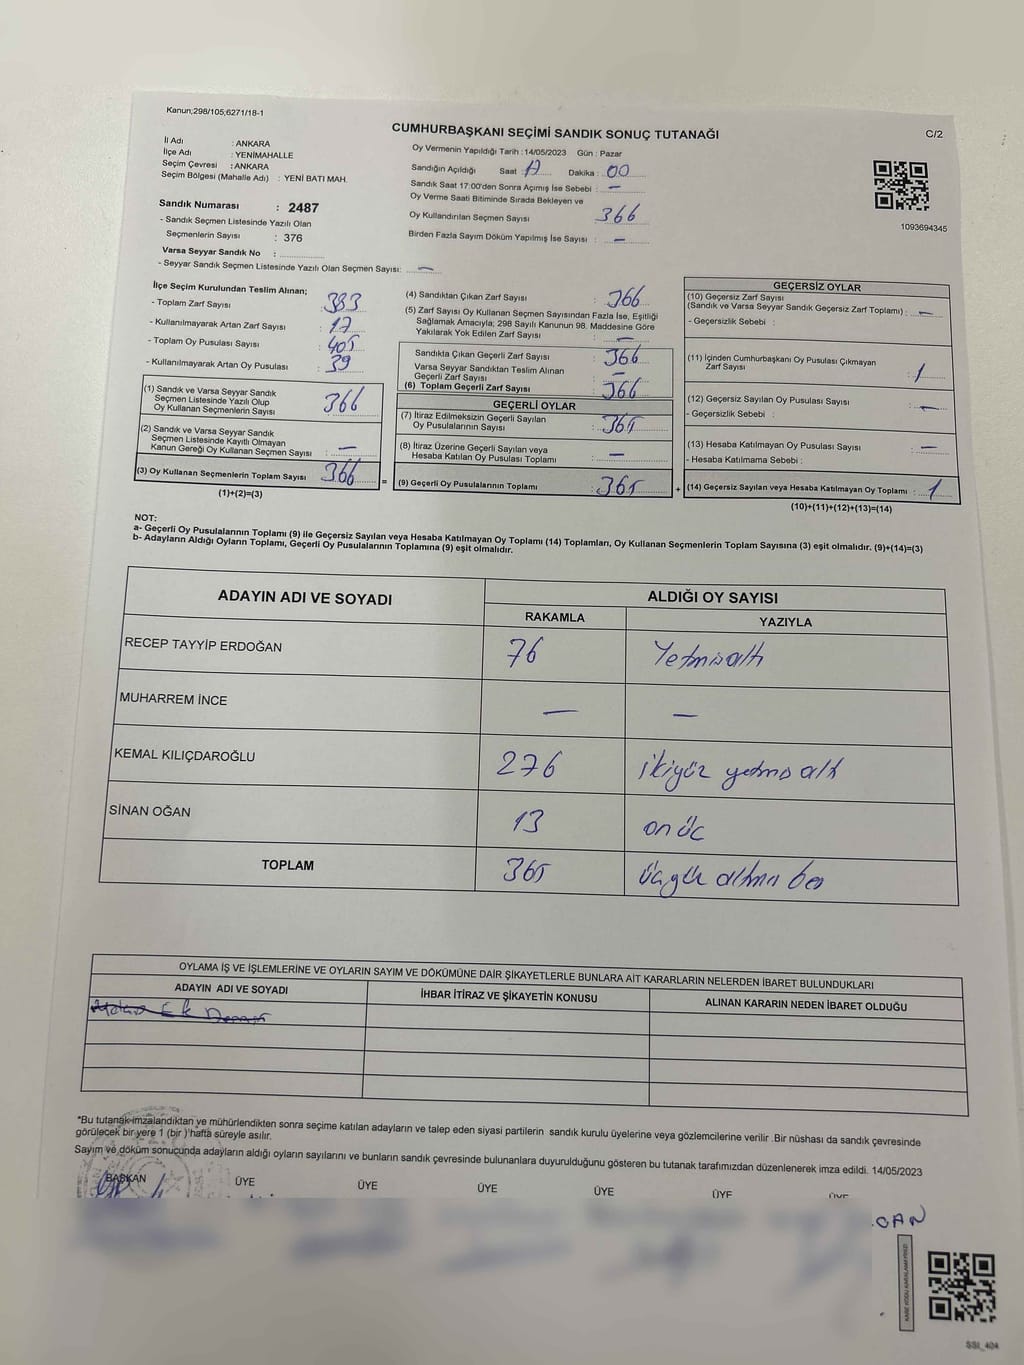 Kanun;298/105;6271/18-1
CUMHURBAŞKANI SEÇİMİ SANDIK SONUÇ TUTANAĞI
C/2
İl Adı : ANKARA
İlçe Adı : YENİMAHALLE
Seçim Çevresi : ANKARA
Seçim Bölgesi (Mahalle Adı) : YENİ BATI MAH.
Sandık Numarası : 2487
- Sandık Seçmen Listesinde Yazılı Olan
Seçmenlerin Sayısı : 376
Varsa Seyyar Sandık No :
- Seyyar Sandık Seçmen Listesinde Yazılı Olan Seçmen Sayısı: —
Oy Vermenin Yapıldığı Tarih : 14/05/2023 Gün : Pazar
Sandığın Açıldığı Saat : 17 Dakika : 00
Sandık Saat 17:00'den Sonra Açımış İse Sebebi : —
Oy Verme Saati Bitiminde Sırada Bekleyen ve
Oy Kullandırılan Seçmen Sayısı 366
Birden Fazla Sayım Döküm Yapılmış İse Sayısı : —
1093694345
İlçe Seçim Kurulundan Teslim Alınan;
- Toplam Zarf Sayısı : 383
- Kullanılmayarak Artan Zarf Sayısı : 17
- Toplam Oy Pusulası Sayısı : 405
- Kullanılmayarak Artan Oy Pusulası : 39
(1) Sandık ve Varsa Seyyar Sandık
Seçmen Listesinde Yazılı Olup
Oy Kullanan Seçmenlerin Sayısı 366
(2) Sandık ve Varsa Seyyar Sandık
Seçmen Listesinde Kayıtlı Olmayan
Kanun Gereği Oy Kullanan Seçmen Sayısı : —
(3) Oy Kullanan Seçmenlerin Toplam Sayısı 366
(1)+(2)=(3)
=
(4) Sandıktan Çıkan Zarf Sayısı : 366
(5) Zarf Sayısı Oy Kullanan Seçmen Sayısından Fazla İse, Eşitliği
Sağlamak Amacıyla; 298 Sayılı Kanunun 98. Maddesine Göre
Yakılarak Yok Edilen Zarf Sayısı : —
Sandıkta Çıkan Geçerli Zarf Sayısı : 366
Varsa Seyyar Sandıktan Teslim Alınan
Geçerli Zarf Sayısı : —
(6) Toplam Geçerli Zarf Sayısı : 366
GEÇERLİ OYLAR
(7) İtiraz Edilmeksizin Geçerli Sayılan
Oy Pusulalarının Sayısı : 365
(8) İtiraz Üzerine Geçerli Sayılan veya
Hesaba Katılan Oy Pusulası Toplamı : —
(9) Geçerli Oy Pusulalarının Toplamı : 365
+
GEÇERSİZ OYLAR
(10) Geçersiz Zarf Sayısı
(Sandık ve Varsa Seyyar Sandık Geçersiz Zarf Toplamı) : —
- Geçersizlik Sebebi :
(11) İçinden Cumhurbaşkanı Oy Pusulası Çıkmayan
Zarf Sayısı : 1
(12) Geçersiz Sayılan Oy Pusulası Sayısı : —
- Geçersizlik Sebebi :
(13) Hesaba Katılmayan Oy Pusulası Sayısı : —
- Hesaba Katılmama Sebebi :
(14) Geçersiz Sayılan veya Hesaba Katılmayan Oy Toplamı : 1
(10)+(11)+(12)+(13)=(14)
NOT:
a- Geçerli Oy Pusulalarının Toplamı (9) ile Geçersiz Sayılan veya Hesaba Katılmayan Oy Toplamı (14) Toplamları, Oy Kullanan Seçmenlerin Toplam Sayısına (3) eşit olmalıdır. (9)+(14)=(3)
b- Adayların Aldığı Oyların Toplamı, Geçerli Oy Pusulalarının Toplamına (9) eşit olmalıdır.
ADAYIN ADI VE SOYADI
ALDIĞI OY SAYISI
RAKAMLA YAZIYLA
RECEP TAYYİP ERDOĞAN 76 Yetmişaltı
MUHARREM İNCE — —
KEMAL KILIÇDAROĞLU 276 ikiyüz yetmiş altı
SİNAN OĞAN 13 on üç
TOPLAM 365 üçyüz altmış beş
OYLAMA İŞ VE İŞLEMLERİNE VE OYLARIN SAYIM VE DÖKÜMÜNE DAİR ŞİKAYETLERLE BUNLARA AİT KARARLARIN NELERDEN İBARET BULUNDUKLARI
ADAYIN ADI VE SOYADI İHBAR İTİRAZ VE ŞİKAYETİN KONUSU ALINAN KARARIN NEDEN İBARET OLDUĞU
*Bu tutanak imzalandıktan ve mühürlendikten sonra seçime katılan adayların ve talep eden siyasi partilerin sandık kurulu üyelerine veya gözlemcilerine verilir .Bir nüshası da sandık çevresinde
görülecek bir yere 1 (bir )'hafta süreyle asılır.
Sayım ve döküm sonucunda adayların aldığı oyların sayılarını ve bunların sandık çevresinde bulunanlara duyurulduğunu gösteren bu tutanak tarafımızdan düzenlenerek imza edildi. 14/05/2023
BAŞKAN ÜYE ÜYE ÜYE ÜYE ÜYE ÜYE
CAN
SSI_404